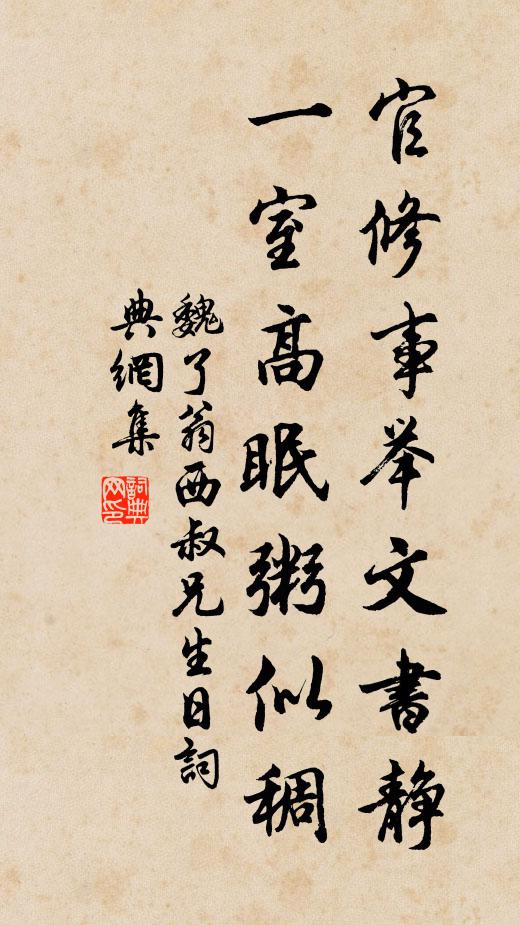 官修事举文書静
一室高眠粥似稠
魏了翁西叔兄生日詞
典網集
詞典
网印